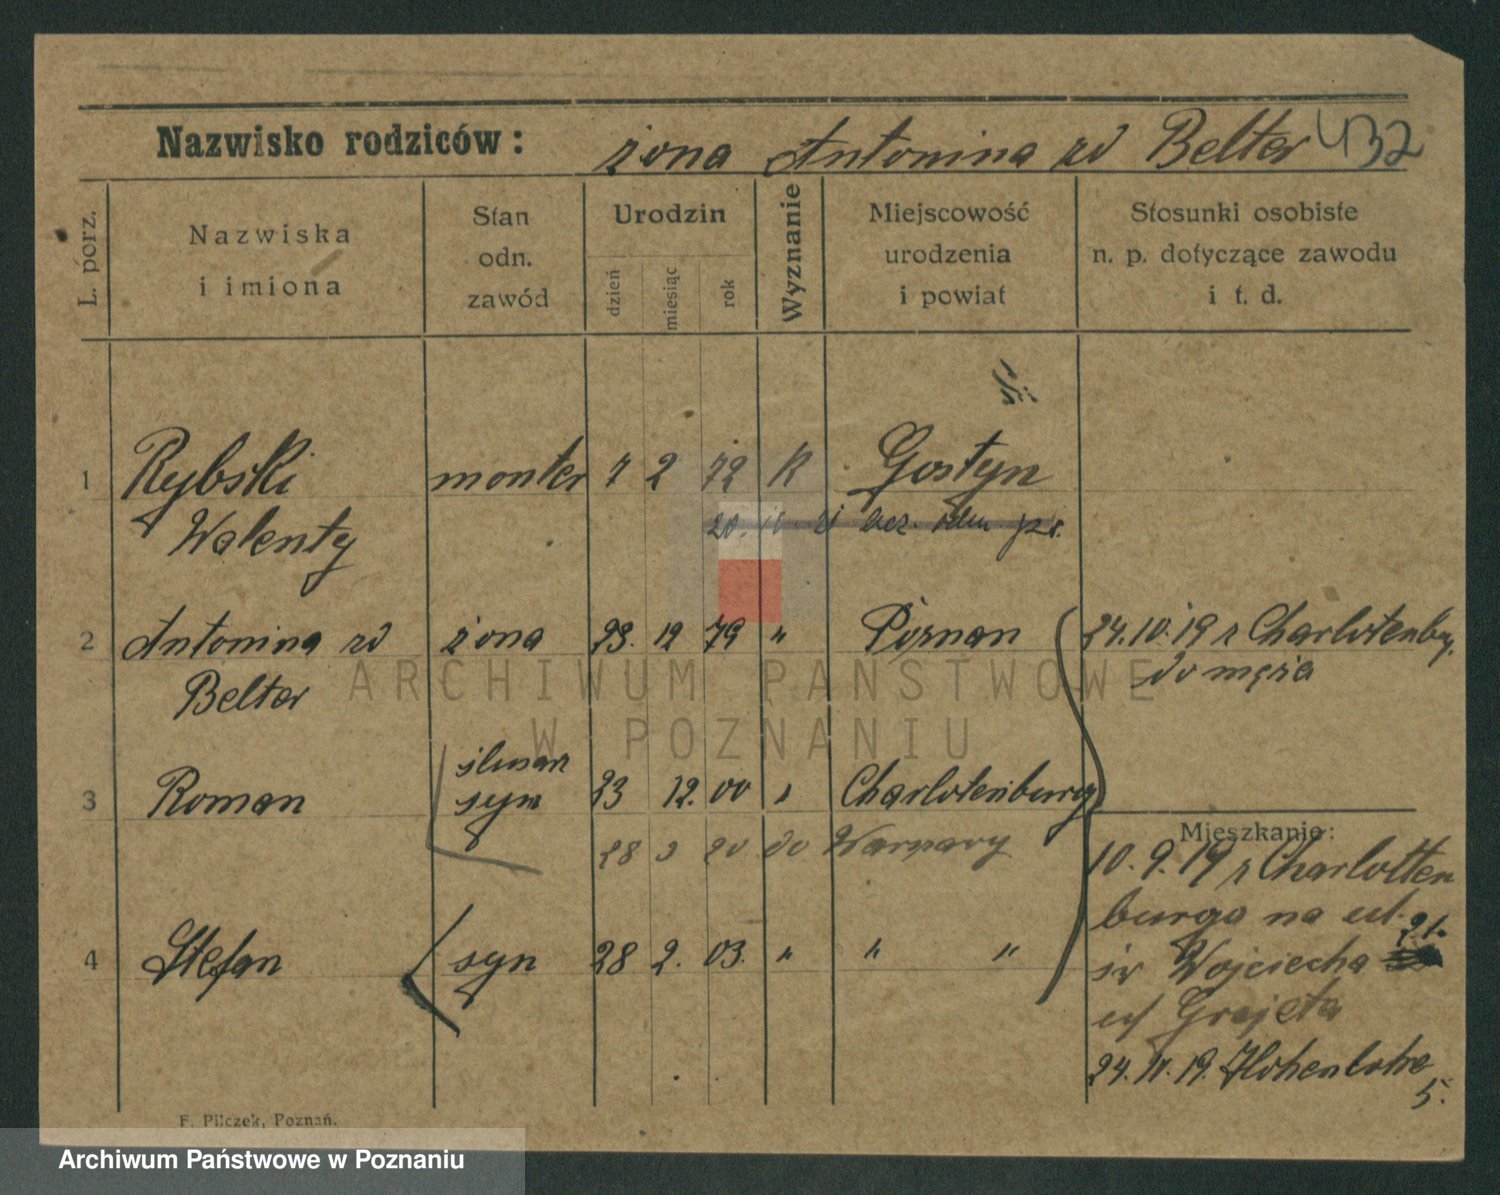 Nazwisko rodziców: żona Antonina zd Belter 432
L. porz.
Nazwiska i imiona
Stan odn. zawód
Urodzin
dzień
miesiąc
rok
Wyznanie
Miejscowość urodzenia i powiat
Stosunki osobiste n. p. dotyczące zawodu i t. d.
1 Rybski monter 7 2 72 K Gostyn
Walenty
2 Antonina zd żona 28. 12 79 " Poznan 24.10.19 z Charlotenburg.
Belter do męża
ślusarz
3 Roman syn 23 12. 00 " Charlotenburg
Mieszkanie:
28 3 20 do Warszawy
10.9.19 z Charlotten
burga na ul.
21.
4 Stefan syn 28 2. 03. " " "
św Wojciecha
ul Grajeta
24. 10. 19. Hohenlohe
5.
F. Pilczek, Poznań.
ARCHIWUM PAŃSTWOWE
W POZNANIU
Archiwum Państwowe w Poznaniu